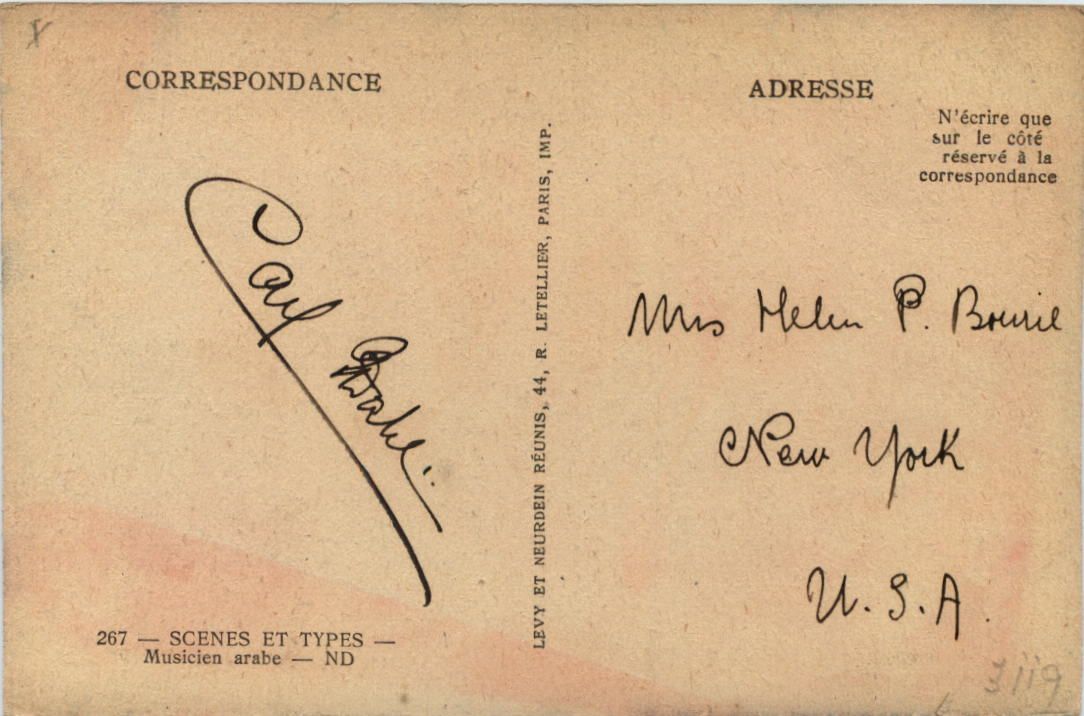 CORRESPONDANCE
Carl
LEVY ET NEURDEIN RÉUNIS, 44, R. LETELLIER, PARIS, IMP.
ADRESSE
N'écrire que
sur le côté
réservé à la
correspondance
Mrs Helen P.
New York
U.S.A.
267 — SCENES ET TYPES —
Musicien arabe — ND